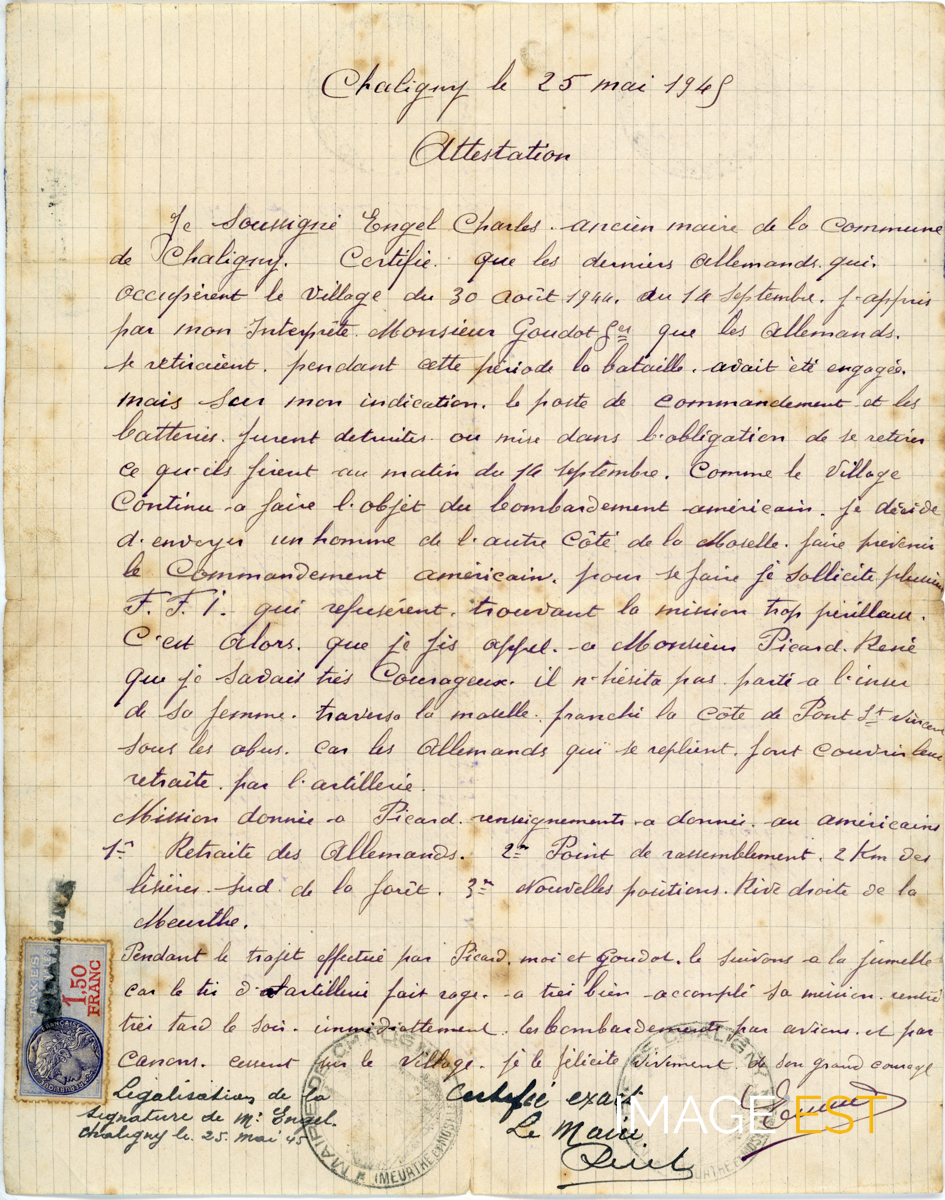 Chaligny le 25 mai 1945
Attestation
Je soussigné Engel Charles. ancien maire de la Commune
de Chaligny. Certifie. que les derniers Allemands. qui.
occupérent le village du 30 août 1944. au 14 septembre. j'appris
par mon Interprête Monsieur Goudot Ges que les Allemands.
se retiraient. pendant cette période la bataille. avait été engagée.
mais sur mon indication. le poste de commandement et les
batteries. furent detruites ou mise dans l'obligation de se retirer
ce qu'ils firent au matin du 14 septembre. Comme le village
Continu a faire l'objet du bombardement américain. je décide
d'envoyer un homme de l'autre côté de la Moselle. faire prévenir
le Commandement américain. pour se faire je sollicite plusieurs
F.F.I. qui refusérent. trouvant la mission trop périlleuse.
C'est Alors. que je fis appel. a Monsieur Picard. René
que je savais très Courageux. il n'hésita pas. parti a l'insu
de sa femme. traversa la moselle. franchi la côte de Pont St Vincent
sous les obus. car les Allemands qui se replient. font couvrir leur
retraite. par l'artillerie.
Mission donnée a Picard. renseignements a donner. au américains
1er Retraite des Allemands. 2me Point de rassemblement. 2 Km des
lisières. sud. de la forêt. 3me Nouvelles positions. Rive droite de la
Meurthe.
Pendant le trajet effectué par Picard. moi et Goudot. le suivons a la jumelle
car le tir d'artillerie fait rage. a très bien accompli sa mission. rentré
très tard le soir. immédiattement. les bombardements par avions. et par
Canons. cessent sur le village. je le félicite vivement de son grand courage
TAXES
1,50
FRANC
Légalisation de la
signature de Mr Engel.
Chaligny le. 25. mai 45
Certifié exact
Le Maire
MAIRIE DE CHALIGNY
(MEURTHE-ET-MOSELLE)
IMAGE EST